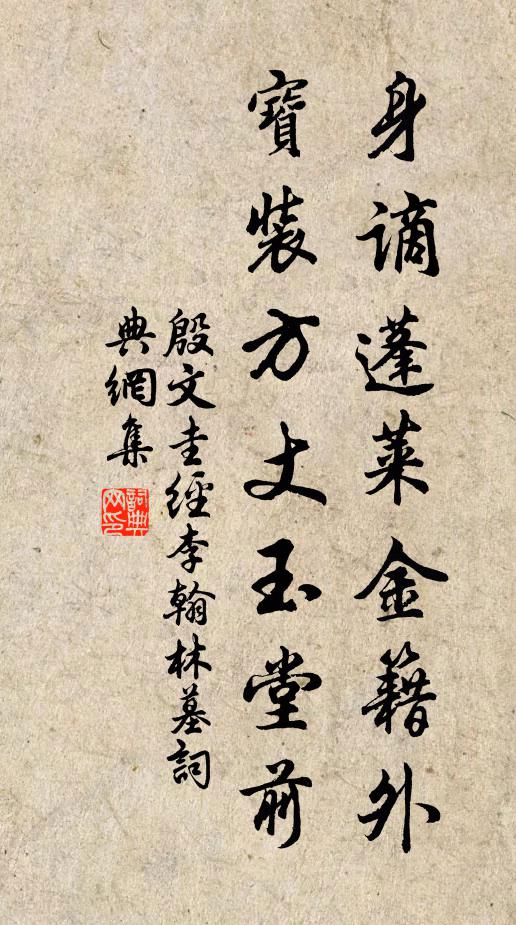 身謫蓬萊金籍外
寶裝方丈玉堂前
殷文圭經李翰林墓詞
典網集
詞典网印